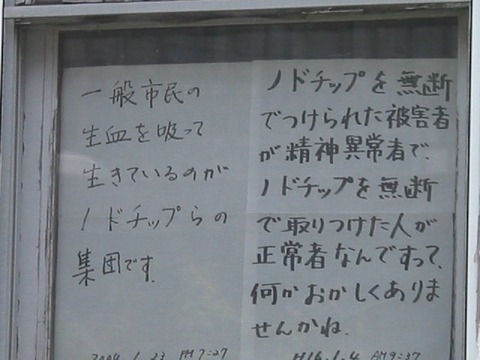 ノドチップを無断
でつけられた被害者
が精神異常者で、
ノドチップを無断
で取りつけた人が
正常者なんですって、
何かおかしくありま
せんかね.
H16.1.4 AM9:37
一般市民の
生血を吸って
生きているのが
ノドチップらの
集団です.
2004.1.23 PM7:27